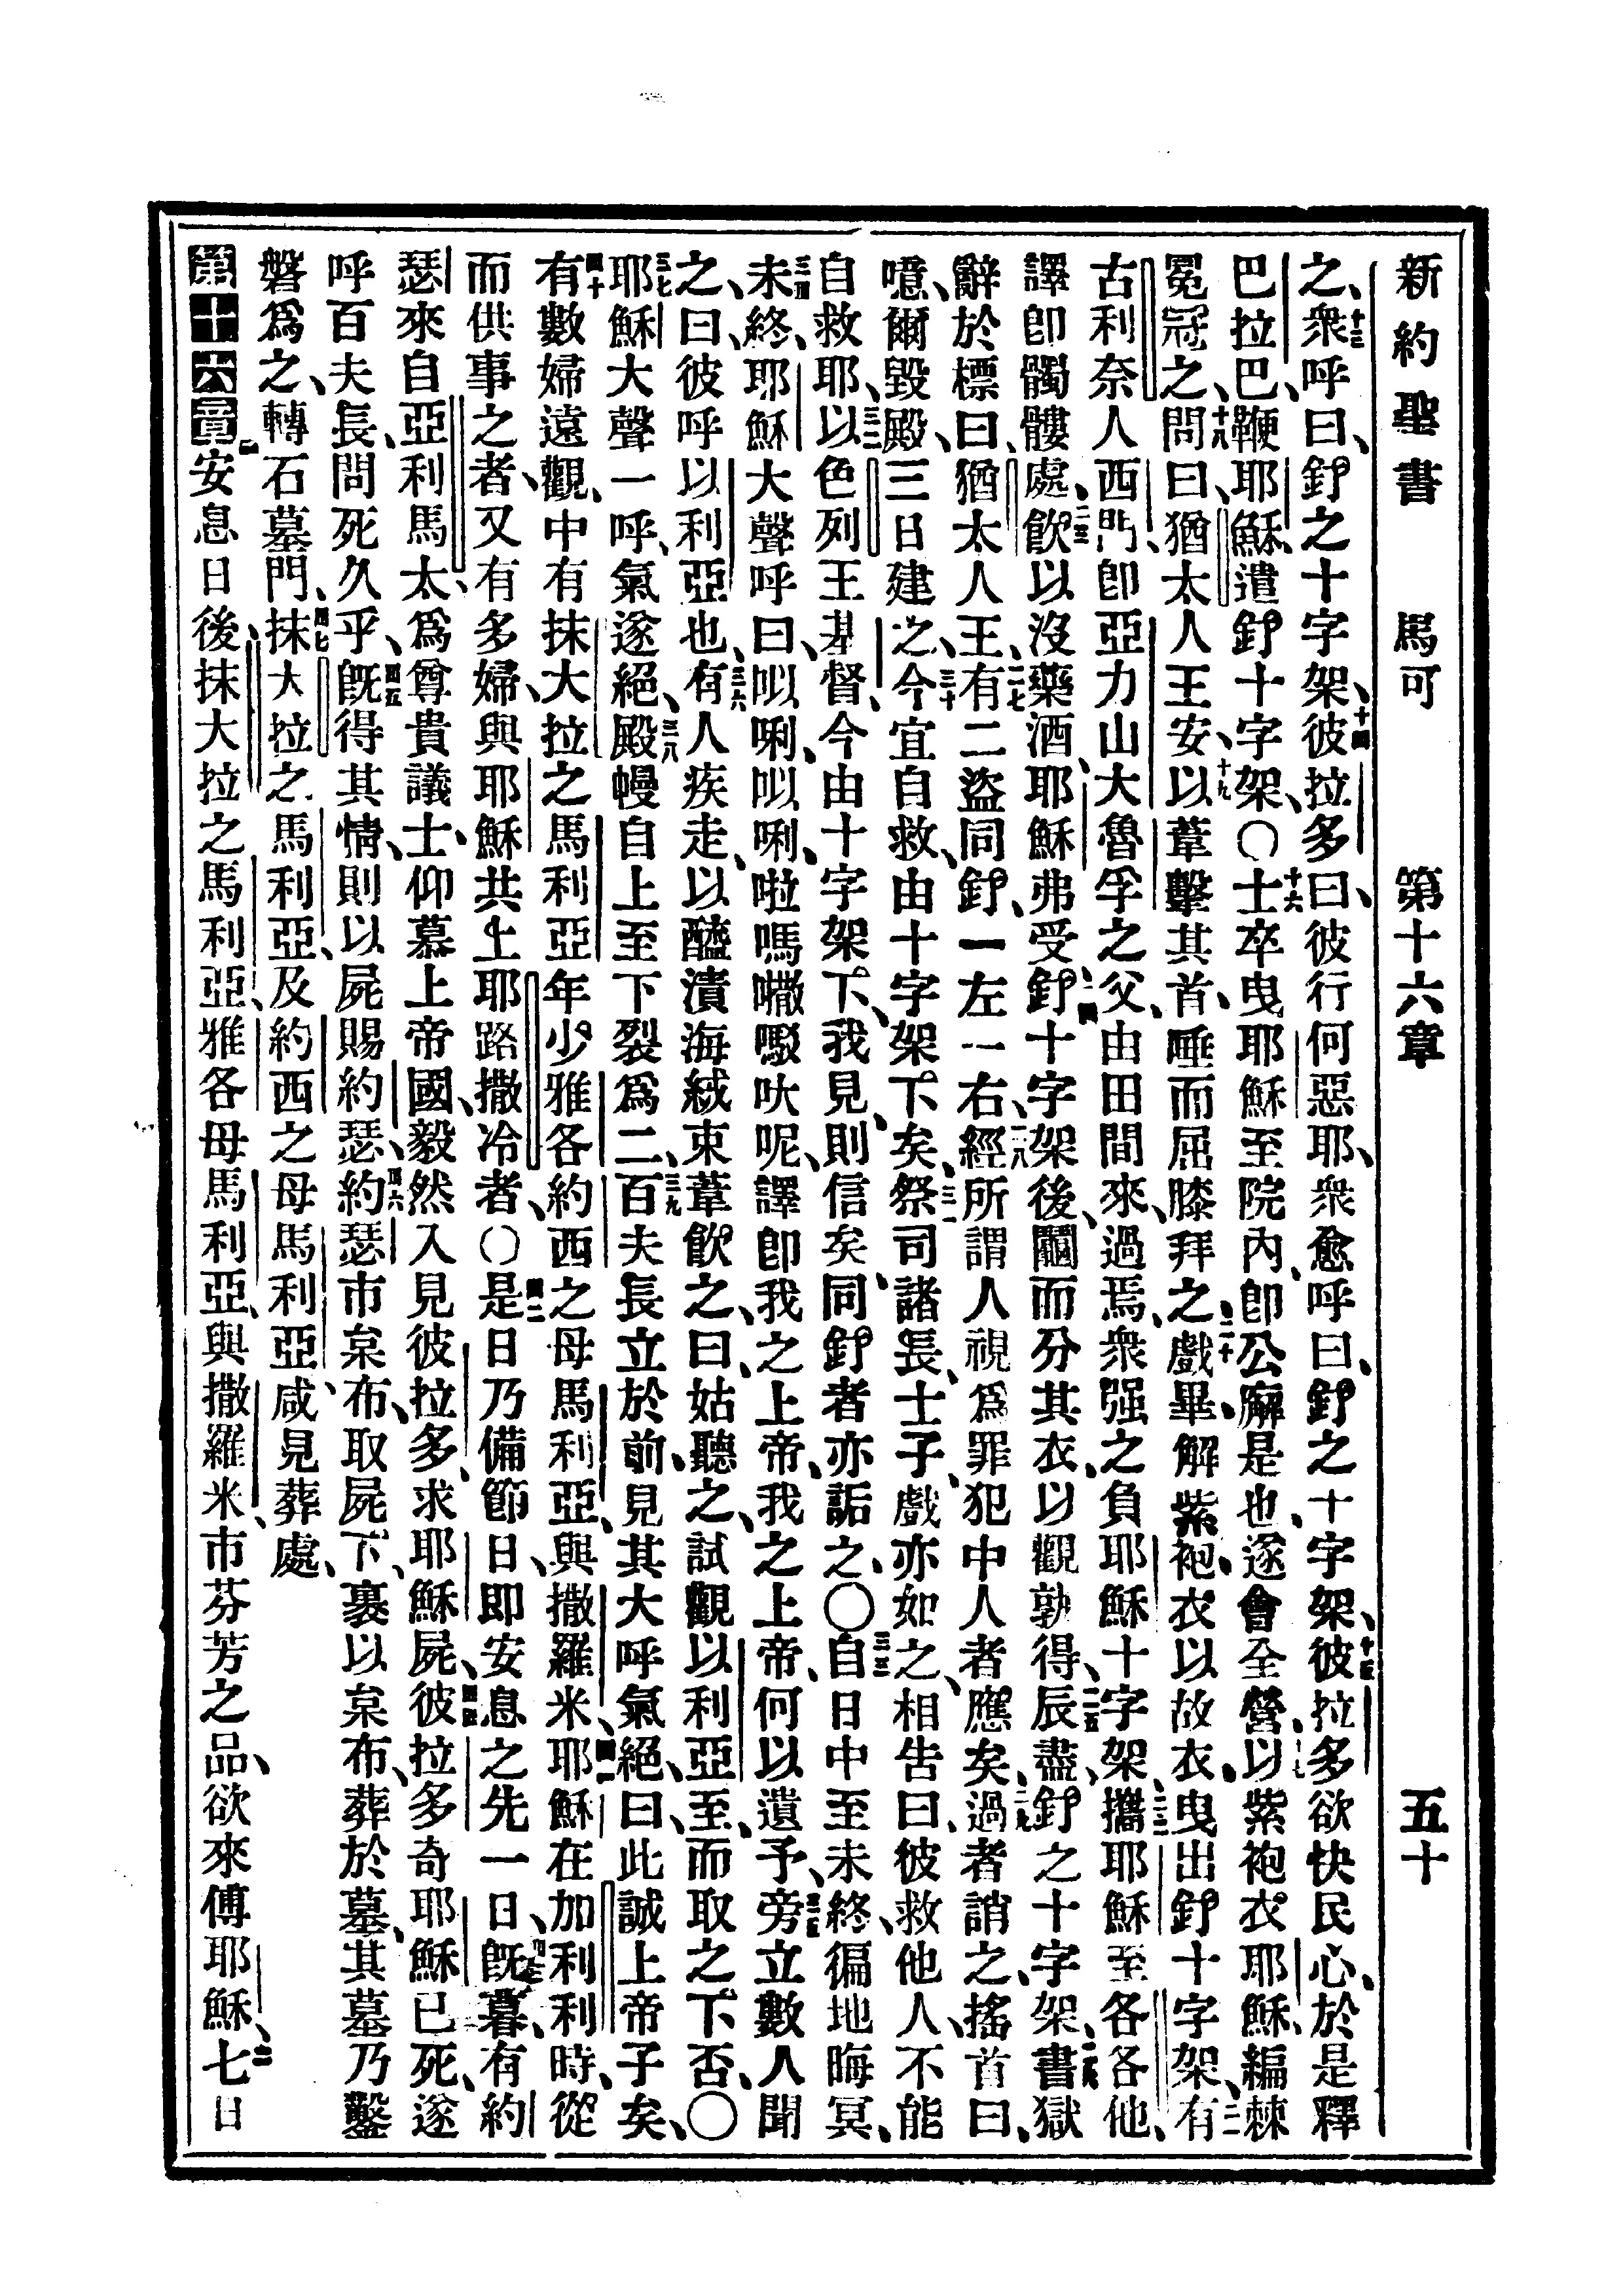 新約聖書 馬可 第十六章 五十
之、十三衆呼曰、釘之十字架、十四彼拉多曰、彼行何惡耶、衆愈呼曰、釘之十字架、十五彼拉多欲快民心、於是釋
巴拉巴、鞭耶穌、遣釘十字架、〇十六士卒曳耶穌至院內、卽公廨是也、遂會全營、十七以紫袍衣耶穌、編棘
冕冠之、十八問曰、猶太人王安、十九以葦擊其首、唾而屈膝拜之、二十戲畢、解紫袍、衣以故衣、曳出釘十字架、二一有
古利奈人西門、卽亞力山大魯孚之父、由田間來、過焉、衆强之負耶穌十字架、二二攜耶穌至各各他、
譯卽髑髏處、二三飮以沒藥酒、耶穌弗受、二四釘十字架後、鬮而分其衣、以觀孰得、二五辰盡、釘之十字架、二六書獄
辭於標曰、猶太人王、二七有二盜同釘、一左一右、二八經所謂人視爲罪犯中人者應矣、二九過者誚之、搖首曰、
噫、爾毀殿、三日建之、三十今宜自救、由十字架下矣、三一祭司諸長、士子、戲亦如之、相告曰、彼救他人、不能
自救耶、三二以色列王基督、今由十字架下、我見、則信矣、同釘者亦詬之、〇三三自日中至未終、徧地晦冥、
三四未終、耶穌大聲呼曰、㕥唎、㕥唎、啦嗎㘔㗨吠呢、譯卽我之上帝、我之上帝、何以遺予、三五旁立數人聞
之、曰、彼呼以利亞也、三六有人疾走、以醯漬海絨、束葦飮之、曰、姑聽之、試觀以利亞至、而取之下否、〇
三七耶穌大聲一呼、氣遂絕、三八殿幔自上至下裂爲二、三九百夫長立於前、見其大呼氣絕、曰、此誠上帝子矣、
四十有數婦遠觀、中有抹大拉之馬利亞、年少雅各約西之母馬利亞、與撒羅米、四一耶穌在加利利時、從
而供事之者、又有多婦、與耶穌共上耶路撒冷者、〇四二是日乃備節日、卽安息之先一日、四三旣暮、有約
瑟來自亞利馬太、爲尊貴議士、仰慕上帝國、毅然入見彼拉多、求耶穌屍、四四彼拉多奇耶穌已死、遂
呼百夫長、問死久乎、四五旣得其情、則以屍賜約瑟、四六約瑟市枲布、取屍下、裹以枲布、葬於墓、其墓乃鑿
磐爲之、轉石墓門、四七抹大拉之馬利亞、及約西之母馬利亞、咸見葬處、
第十六章 一安息日後、抹大拉之馬利亞、雅各母馬利亞、與撒羅米、市芬芳之品、欲來傅耶穌、二七日